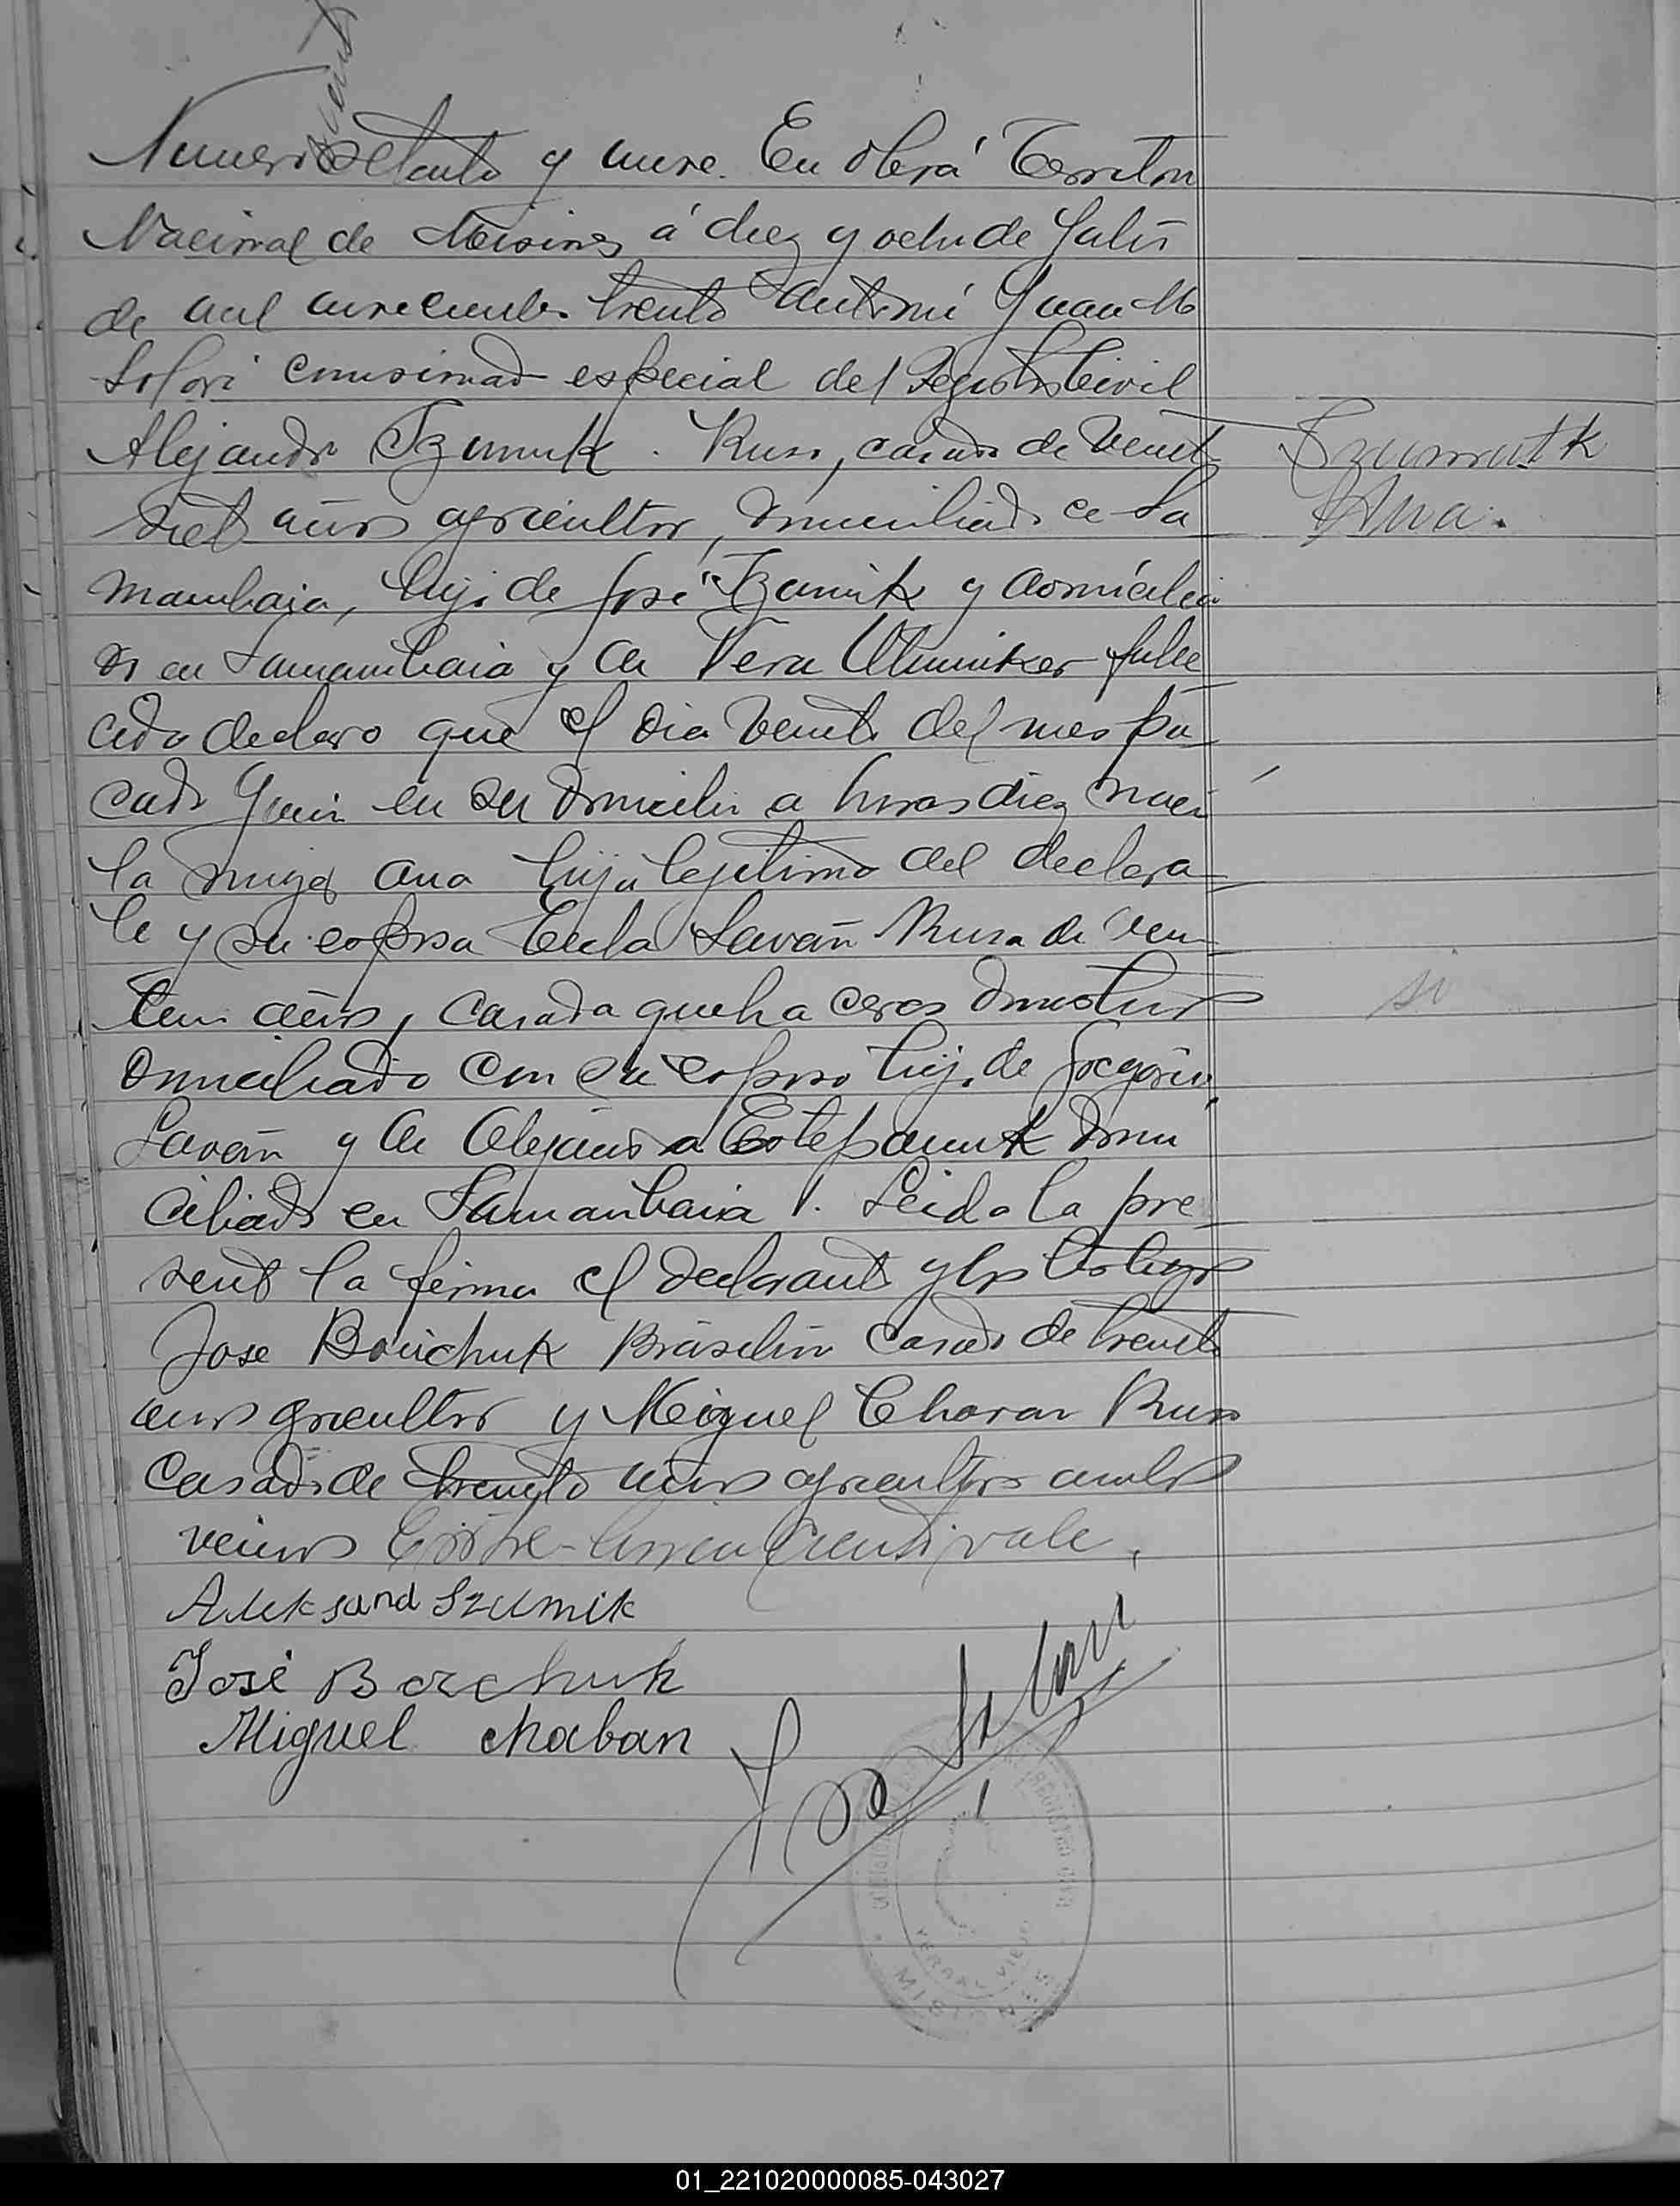 ciento
Numero setenta y nueve. En Oberá Territorio
Nacional de Misiones á diez y ocho de Julio
de mil novecientos treinta ante mí Juan M
Solari comisionado especial del Registro Civil
Alejandro Szumuk. Ruso, casado de veinte
siete años agricultor, domiciliado e Sa
mambaia, hijo de José Szumik y domicilia
do en Samambaia y de Vera falle
cida declaro que el dia veinte del mes pa
sado Junio en su domicilio a horas diez nacio
la mujer Ana hija legitima del declara
te y su esposa Tecla Savañ Rusa de vein
años, casada quehaceres domesticos
domiciliado con su esposo hija de Gregorio
Savañ y de Alejandra Estepaniuk domi
ciliado en Samambaia. Leida la pre
sente la firma el declarante y los testigos
Jose Boiichuk Brasilero casado de treinta
años agricultor y Miguel Choran Ruso
casado de treinta años agricultor ambos
vecinos Entre-linea ciento vale.
Aleksand Szumik
José Borchuk
Miguel Chaban
J M Solari
REGISTRO CIVIL
YERBAL VIEJO
MISIONES
Szumutk
Ana.
si
01_221020000085-043027